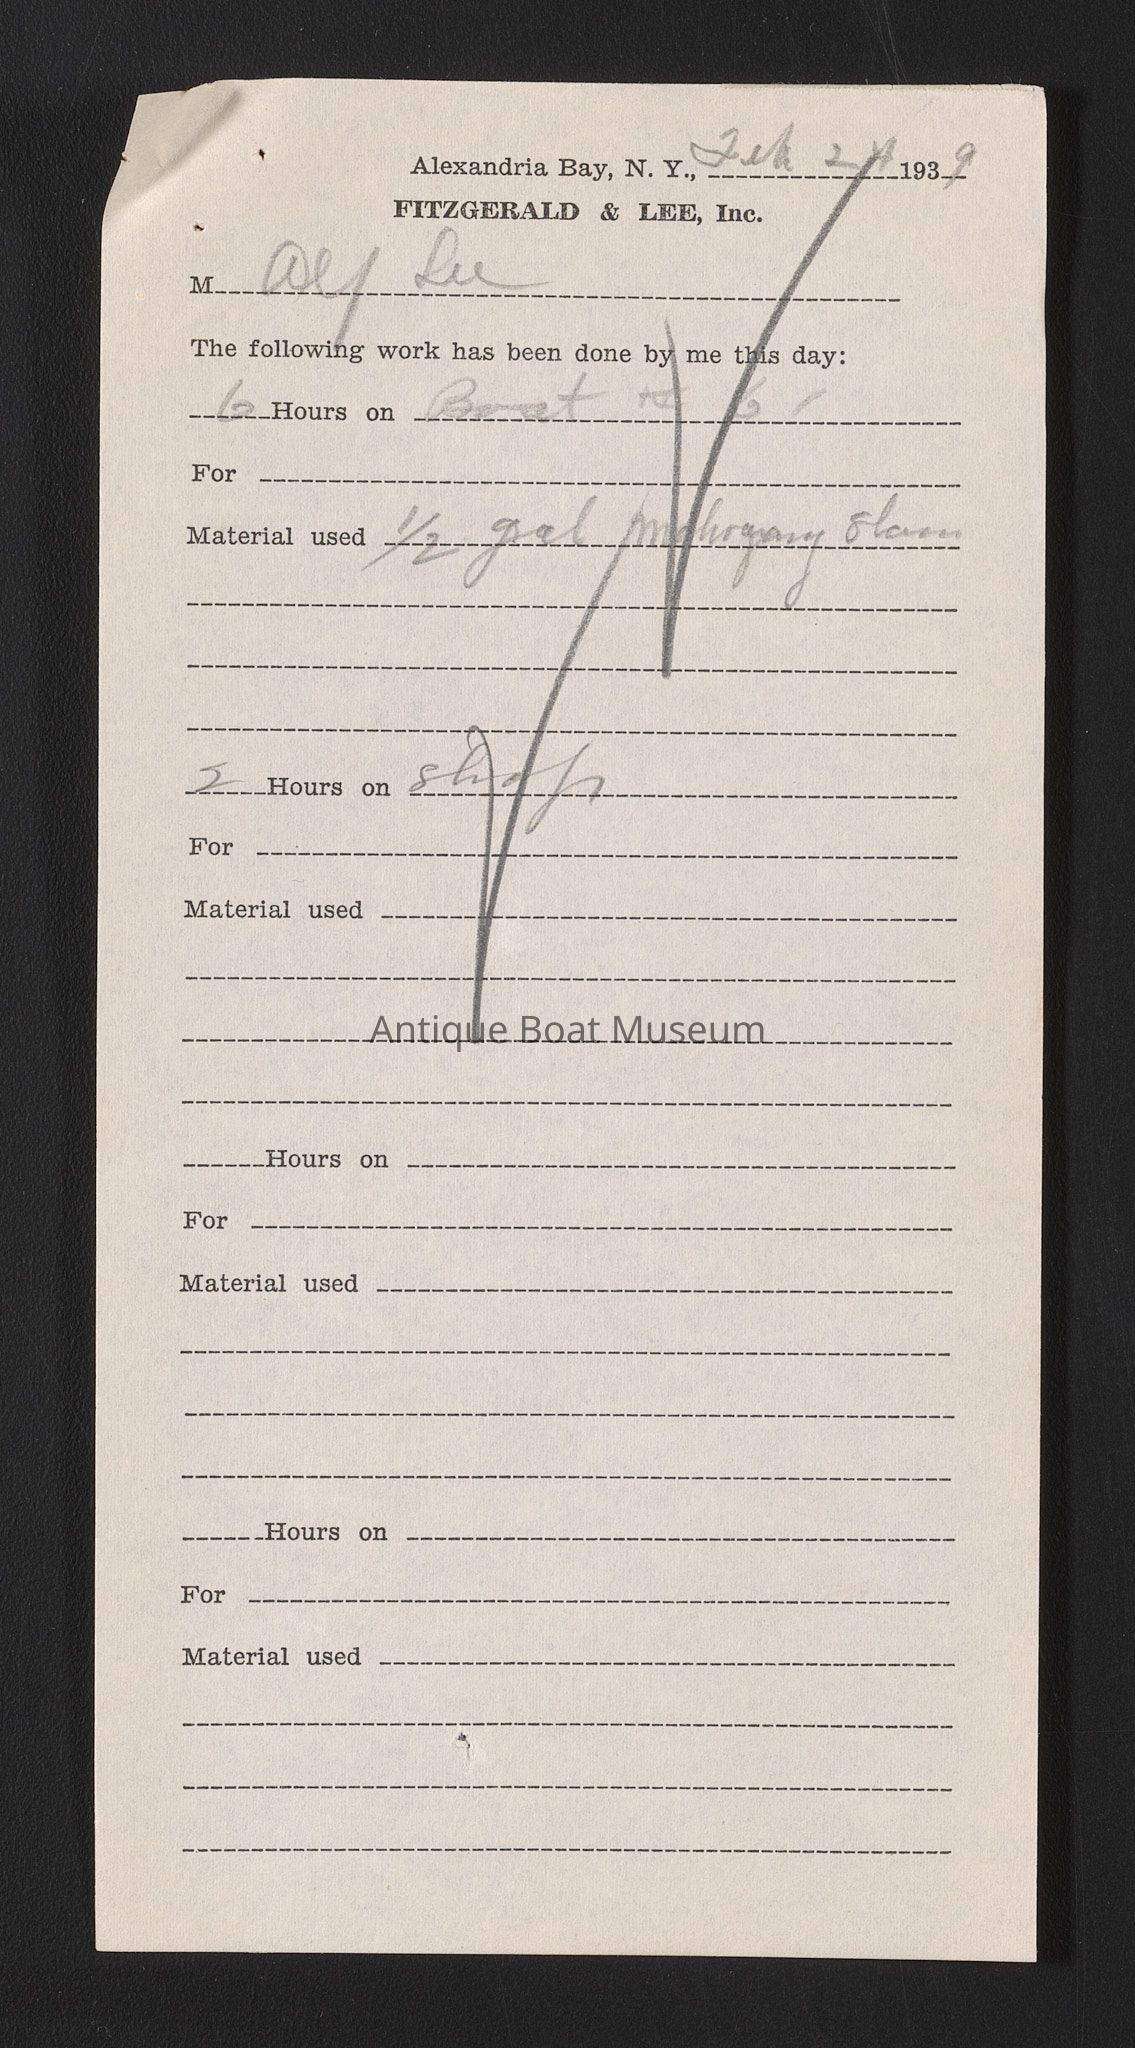 Alexandria Bay, N. Y., Feb 24 1939
FITZGERALD & LEE, Inc.
M Alf Lee
The following work has been done by me this day:
6 Hours on Boat # 6
For
Material used 1/2 gal mahogany Stain
2 Hours on shop
For
Material used
Antique Boat Museum
Hours on
For
Material used
Hours on
For
Material used